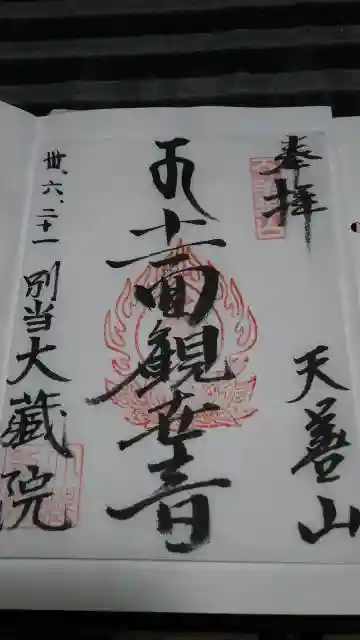 奉拝
天善山
十一面観世音
卅、六、二十一
別当大蔵院